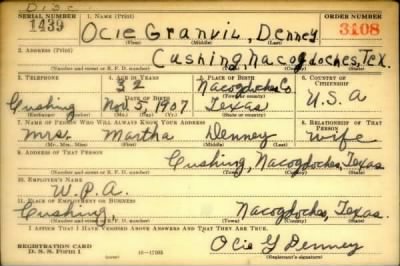 Disc
SERIAL NUMBER 1. NAME (Print) ORDER NUMBER
1439 Ocie Granvil, Denney 3108
(First) (Middle) (Last)
2. ADDRESS (Print)
Cushing, Nacogdoches, Tex.
(Number and street or R. F. D. number) (Town) (County) (State)
3. TELEPHONE 4. AGE IN YEARS 5. PLACE OF BIRTH 6. COUNTRY OF CITIZENSHIP
32 Nacogdoches Co.
DATE OF BIRTH (Town or county)
Cushing Nov. 5, 1907 Texas U.S.A
(Exchange) (Number) (Mo.) (Day) (Yr.) (State or country)
7. NAME OF PERSON WHO WILL ALWAYS KNOW YOUR ADDRESS 8. RELATIONSHIP OF THAT PERSON
Mrs. Martha Denney Wife
(Mr., Mrs., Miss) (First) (Middle) (Last)
9. ADDRESS OF THAT PERSON
Cushing, Nacogdoches, Texas
(Number and street or R. F. D. number) (Town) (County) (State)
10. EMPLOYER'S NAME
W.P.A.
11. PLACE OF EMPLOYMENT OR BUSINESS
Cushing, Nacogdoches, Texas.
(Number and street or R. F. D. number) (Town) (County) (State)
I AFFIRM THAT I HAVE VERIFIED ABOVE ANSWERS AND THAT THEY ARE TRUE.
REGISTRATION CARD
D. S. S. Form 1 Ocie G Denney
(Registrant's signature)